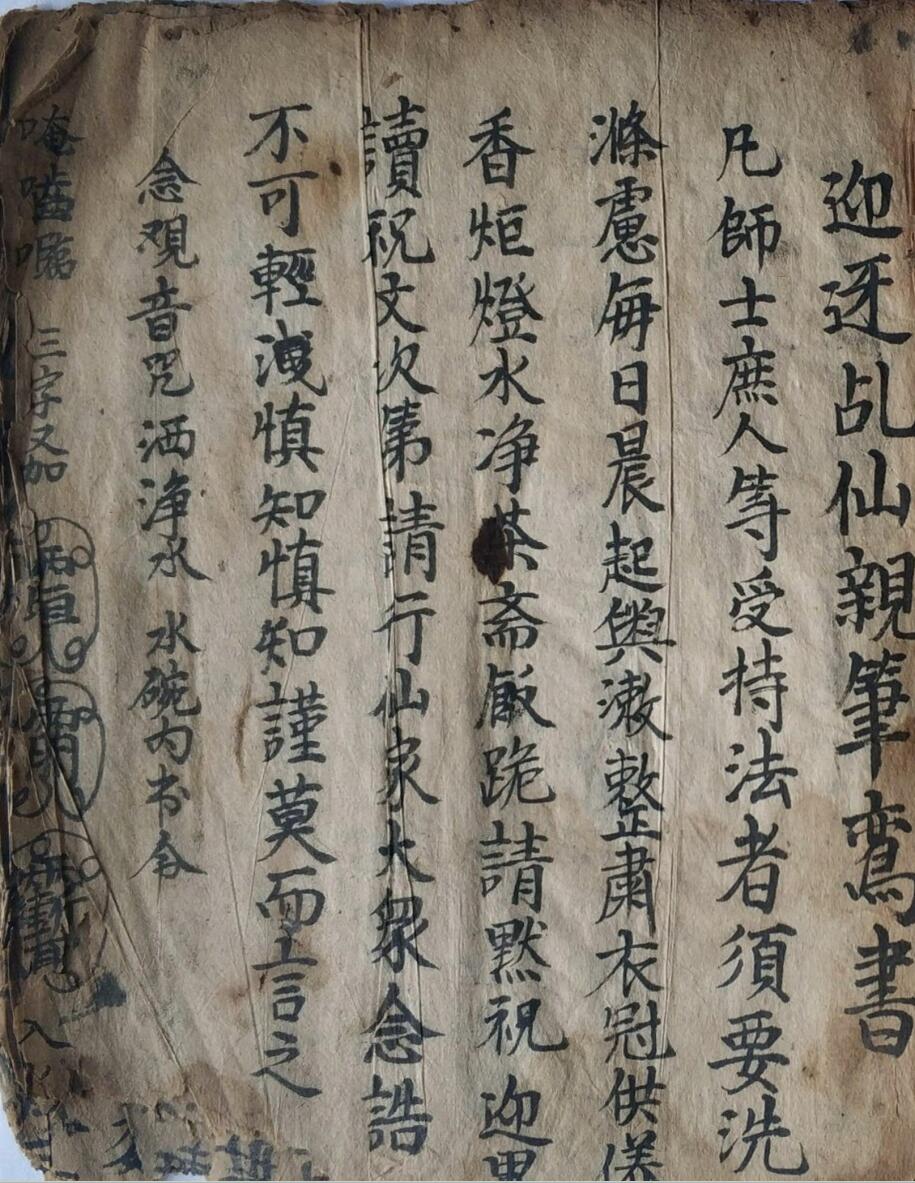 迎迓乩仙親筆鸞書
凡師士庶人等受持法者須要洗
滌慮每日晨起與漱整肅衣冠供
香炬燈水净茶斋飯跪請默祝迎
讀祝文次第請行仙家大衆念誥
不可輕洩慎知慎知謹莫而言之
念观音咒洒净水水碗内书令
唵嚙 三字又加 入